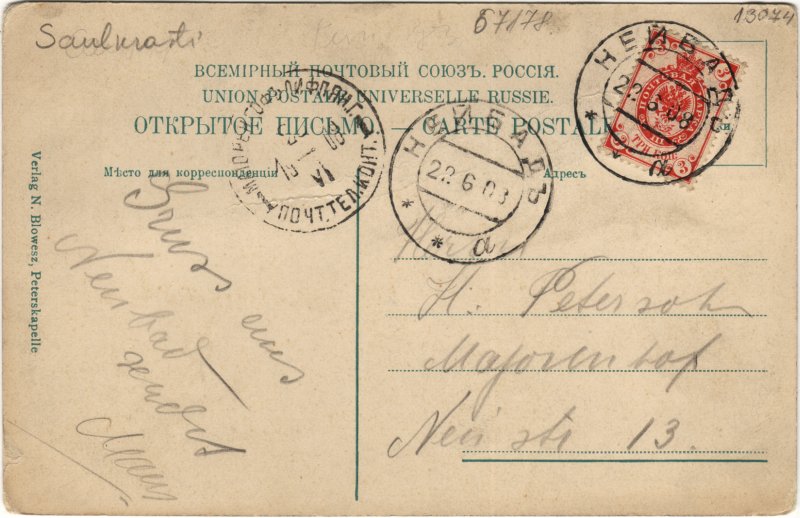 Saulkrasti
67178
13074
ВСЕМІРНЫЙ ПОЧТОВЫЙ СОЮЗЪ. РОССІЯ.
UNION POSTALE UNIVERSELLE RUSSIE.
ОТКРЫТОЕ ПИСЬМО. — CARTE POSTALE
Мѣсто для корреспонденціи
Адресъ
НЕЙБАДЪ
22.6.08
а
НЕЙБАДЪ
22.6.08
а
ПОЧТ.ТЕЛ.КОНТ.
ПОЧТОВАЯ
ТРИ КОП.
3
3
Verlag N. Blowesz, Peterskapelle
Gruss aus
Neubad
sendet
H. Petersohn
Majorenhof
13.